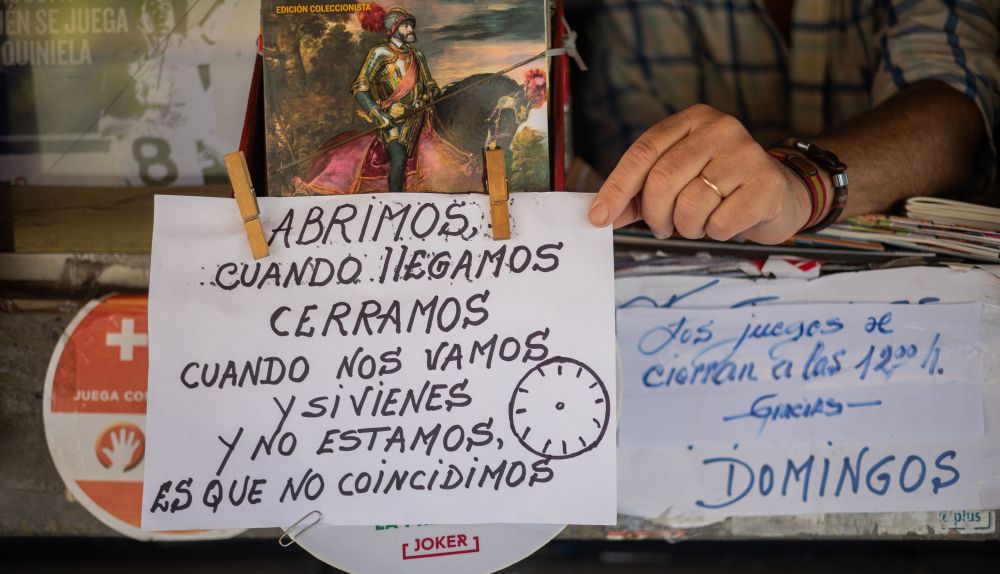 EN SE JUEGA
QUINIELA
8
EDICIÓN COLECCIONISTA
ABRIMOS,
CUANDO llEGAMOS
CERRAMOS
CUANDO NOS VAMOS
Y SI VIENES
Y NO ESTAMOS,
ES QUE NO COINCIDIMOS
JUEGA CO
JOKER
Los juegos se
cierran a las 12,00 h.
—Gracias—
DOMINGOS
plus